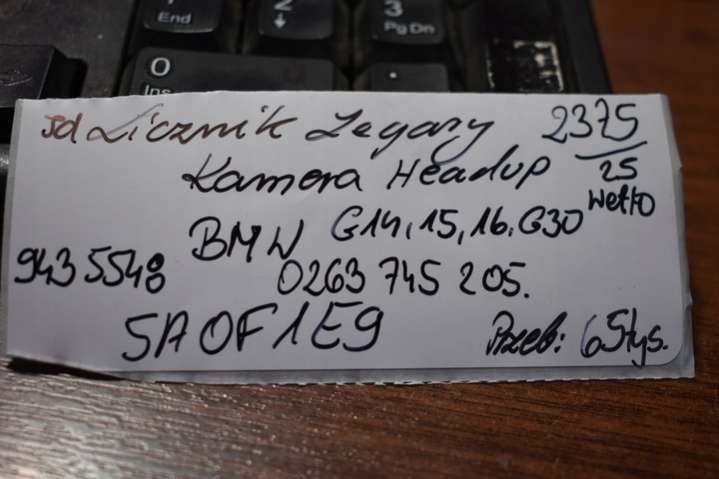 1
End
2
↓
3
Pg Dn
0
Ins
.
sd Licznik Zegary 2375/25
Kamera Headup Netto
BMW G14,15,16,G30
9435548 0263 745 205.
5A0F1E9 Przeb: 65tys.